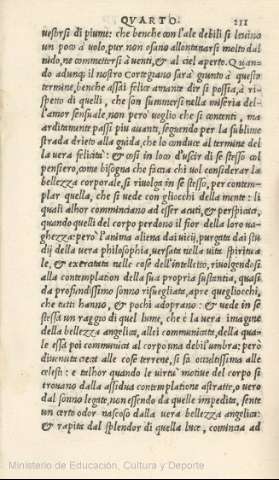 QVARTO. 211
uestirsi di piume: che benche con l'ale debili si leuino
un poco à uolo, pur non osano allontanarsi molto dal
nido, ne commettersi à uenti, & al ciel aperto. Quan-
do adunq; il nostro Cortegiano sarà giunto à questo
termine, benche assai felice amante dir si possia, à ri-
spetto di quelli, che son summersi nella miseria del-
l'amor sensuale, non però uoglio che si contenti, ma
arditamente passi piu auanti, seguendo per la sublime
strada drieto alla guida, che lo conduce al termine del
la uera felicità: & cosi in loco d'uscir di se stesso col
pensiero, come bisogna che faccia chi uol considerar la
bellezza corporale, si riuolga in se stesso, per contem-
plar quella, che si uede con gliocchi della mente: li
quali alhor cominciano ad esser acuti, & perspicaci,
quando quelli del corpo perdono il fior della loro ua-
ghezza: però l'anima aliena dai uicij, purgata dai stu-
dij della uera philosophia, uersata nella uita spiritua
le, & exercitata nelle cose dell'intelletto, riuolgendosi
alla contemplation della sua propria sustantia, quasi
da profundissimo sonno risuegliata, apre quegliocchi,
che tutti hanno, & pochi adoprano: & uede in se
stessa un raggio di quel lume, che è la uera imagine
della bellezza angelica, allei communicata, della qua
le essa poi communica al corpo una debil umbra: però
diuenuta cieca alle cose terrene, si fa oculatissima alle
celesti: e talhor quando le uirtù motiue del corpo si
trouano dalla assidua contemplatione astratte, o uero
dal sonno legate, non essendo da quelle impedita, sente
un certo odor nascoso della uera bellezza angelica:
& rapita dal splendor di quella luce, comincia ad
Ministerio de Educación, Cultura y Deporte